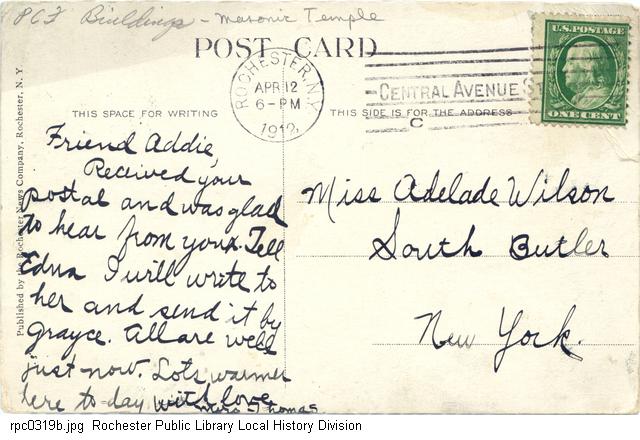 RCF Buildings - Masonic Temple
POST CARD
ROCHESTER, N.Y.
APR 12
6-PM
1912
CENTRAL AVENUE ST
C
U.S. POSTAGE
ONE CENT
THIS SPACE FOR WRITING
THIS SIDE IS FOR THE ADDRESS
Published by the Rochester News Company, Rochester, N. Y.
Friend Addie,
Received your
postal and was glad
to hear from you. Tell
Edna I will write to
her and send it by
Grayce. All are well
just now. Lots warmer
here to-day with love
Mrs. Thomas
Miss Adelade Wilson
South Butler
New York.
rpc0319b.jpg Rochester Public Library Local History Division